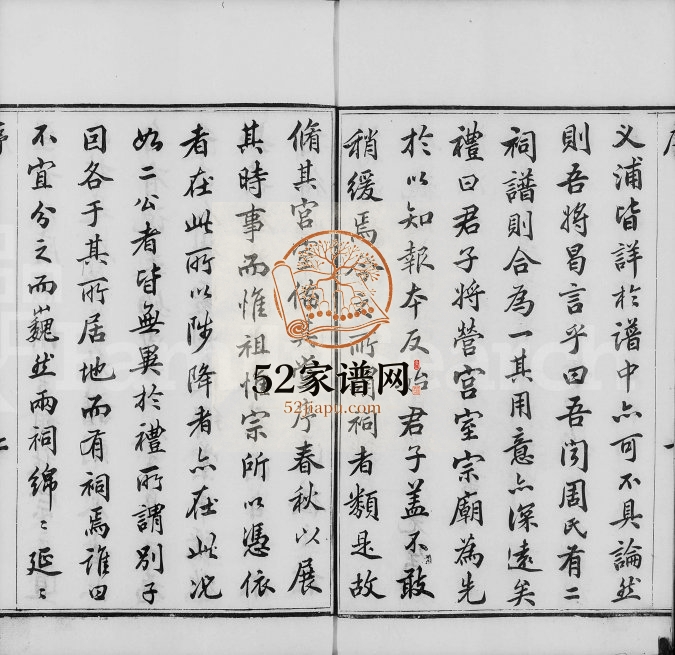 序
一
义浦皆詳於譜中亦可不具論然
則吾將昌言乎曰吾闻周氏有二
祠譜則合為一其用意亦深遠矣
禮曰君子將營宫室宗廟為先
於以知報本反始君子盖不敢
稍缓焉 祠者類是故
脩其宫室備其 序春秋以展
其時事而惟祖惟宗所以憑依
者在此所以陟降者亦在此况
如二公者皆無異於禮所謂别子
曰各于其所居地而有祠焉誰曰
不宜分之而巍然兩祠綿〻延〻
序
二
52家谱网
52jiapu.com